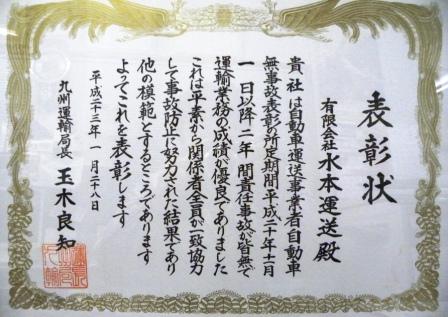 表彰状
有限会社水本運送殿
貴社は自動車運送事業者自動車
無事故表彰の所定期間平成二十年十一月
一日以降二年間責任事故が皆無で
運輸業務の成績が優良でありました
これは平素から関係者全員が一致協力
して事故防止に努力された結果であり
他の模範とするところであります
よってこれを表彰します
平成二十三年一月二十八日
九州運輸局長 玉木良知